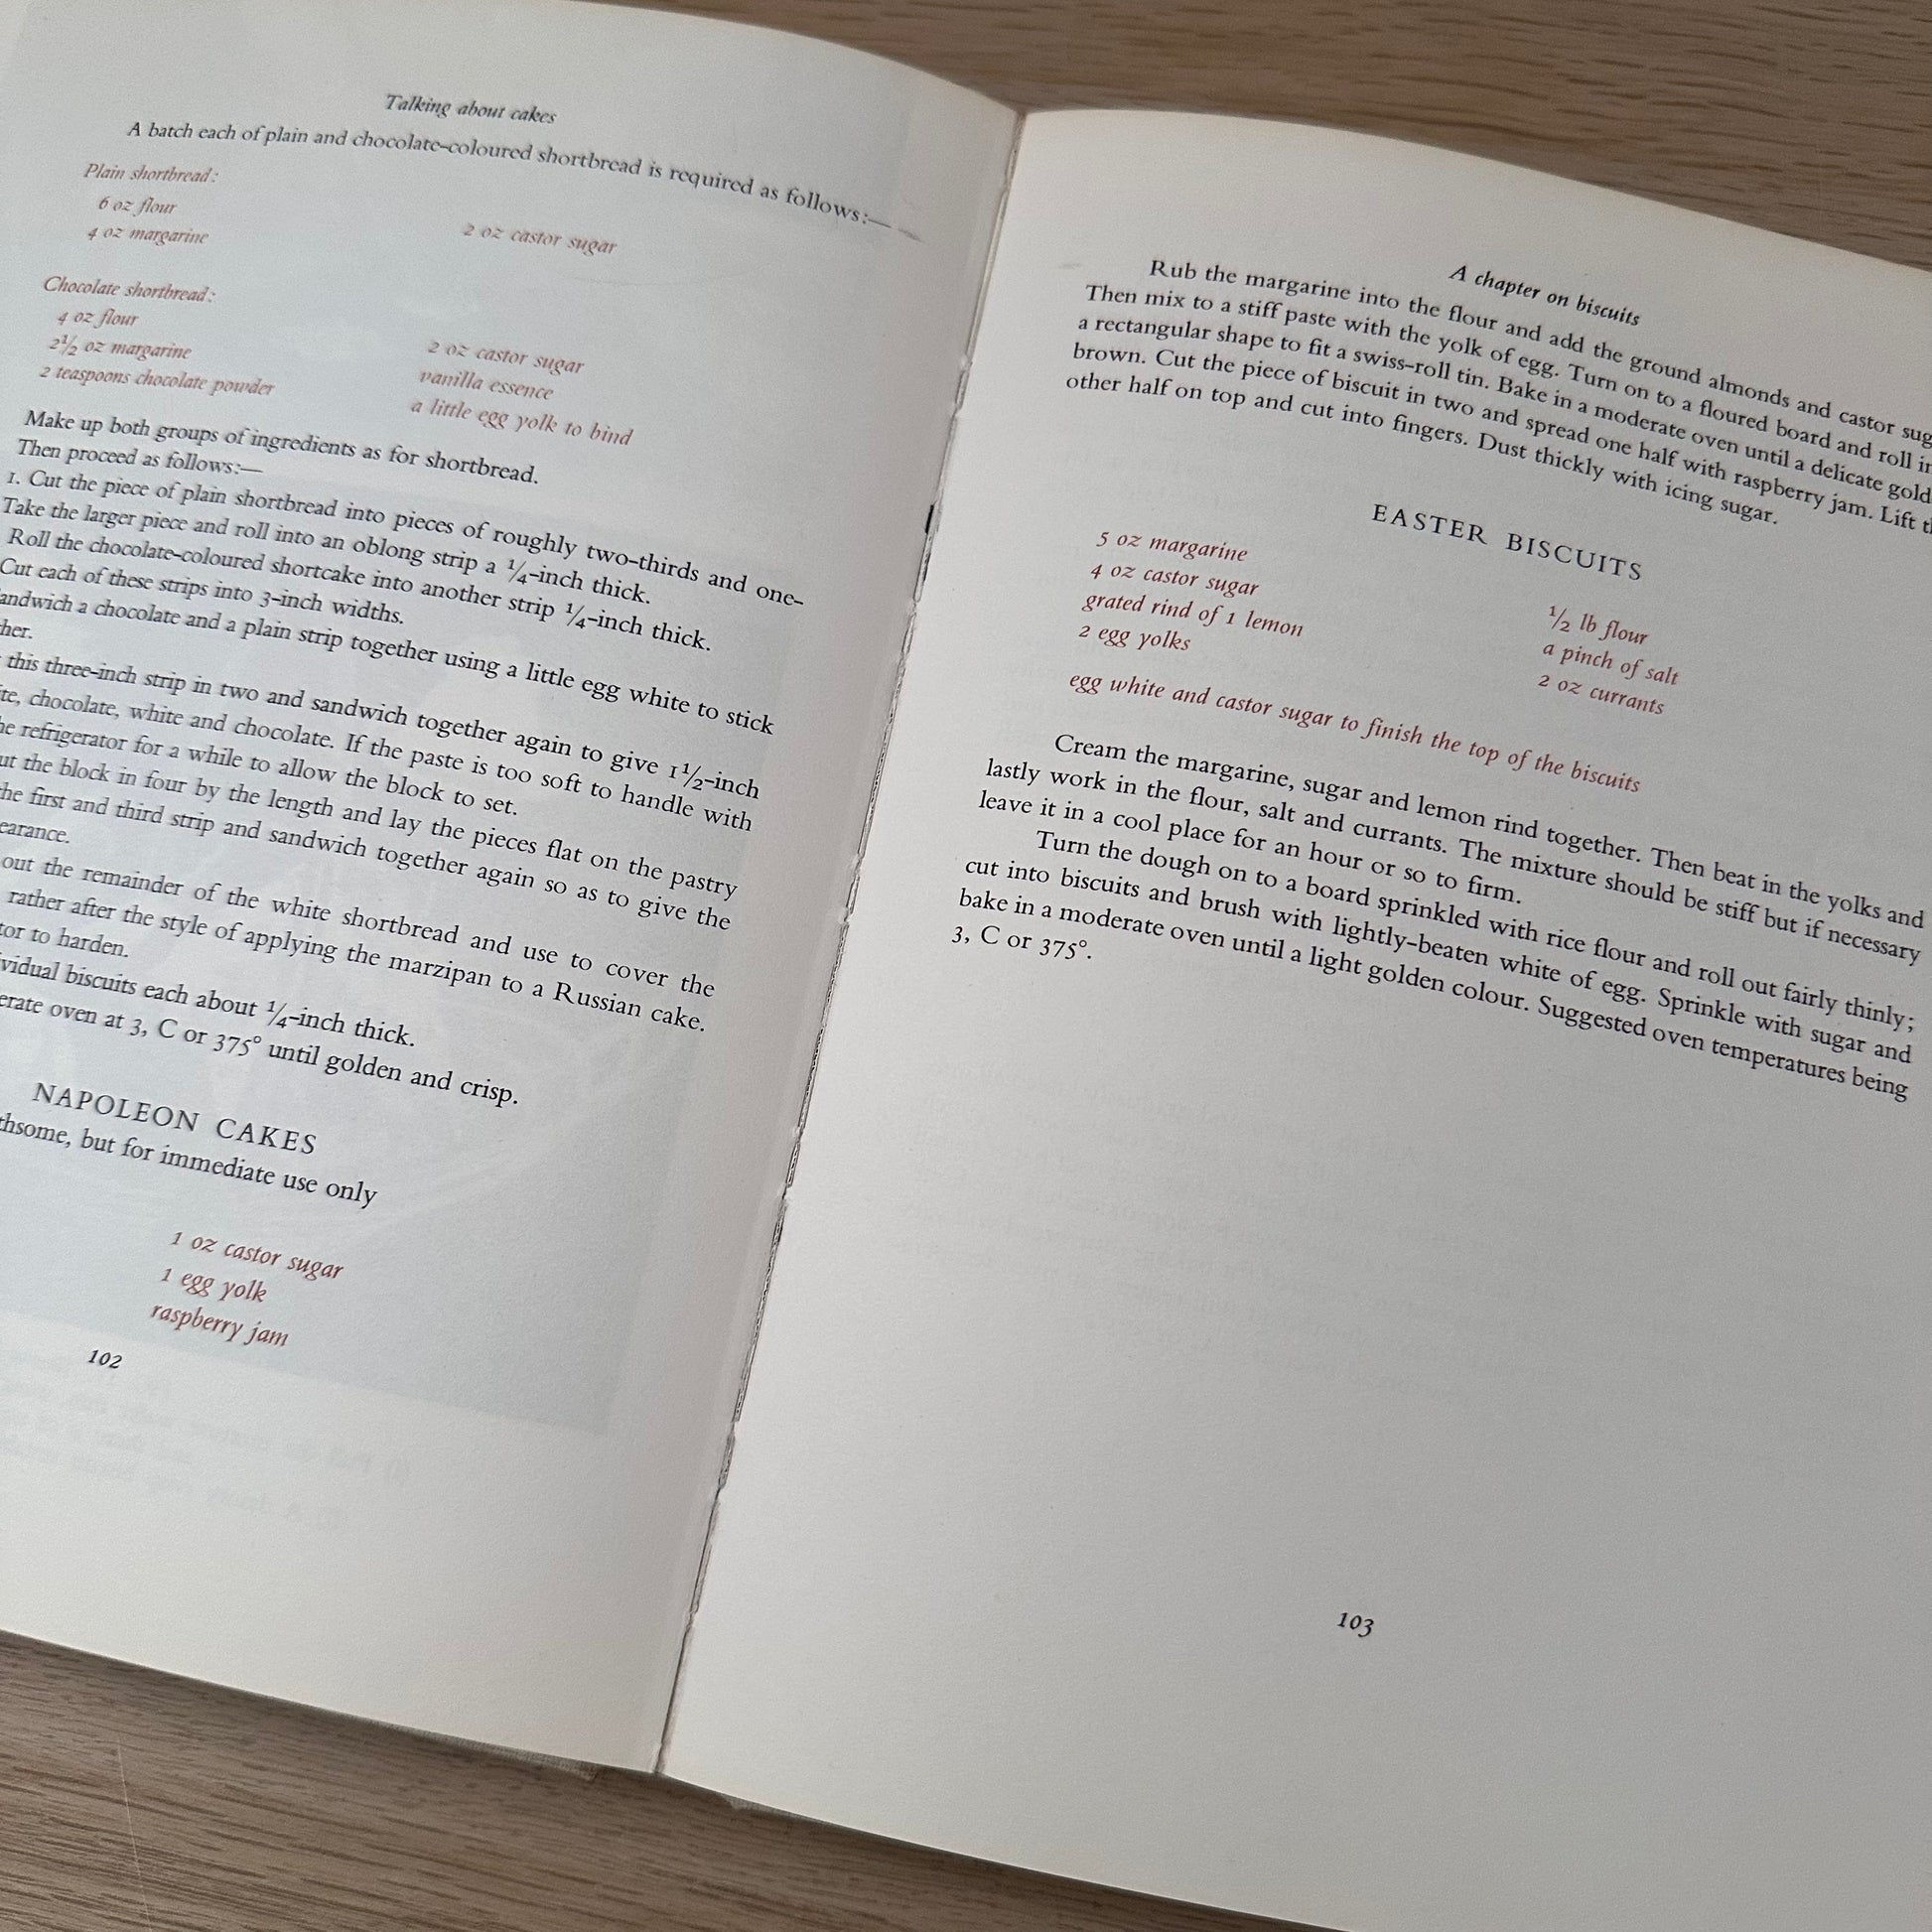 Talking about cakes
A batch each of plain and chocolate-coloured shortbread is required as follows:—
Plain shortbread:
6 oz flour
4 oz margarine
2 oz castor sugar
Chocolate shortbread:
4 oz flour
2½ oz margarine
2 teaspoons chocolate powder
2 oz castor sugar
vanilla essence
a little egg yolk to bind
Make up both groups of ingredients as for shortbread.
Then proceed as follows:—
1. Cut the piece of plain shortbread into pieces of roughly two-thirds and one-
Take the larger piece and roll into an oblong strip a ¼-inch thick.
Roll the chocolate-coloured shortcake into another strip ¼-inch thick.
Cut each of these strips into 3-inch widths.
a chocolate and a plain strip together using a little egg white to stick
this three-inch strip in two and sandwich together again to give 1½-inch
chocolate, white and chocolate. If the paste is too soft to handle with
refrigerator for a while to allow the block to set.
the block in four by the length and lay the pieces flat on the pastry
the first and third strip and sandwich together again so as to give the
out the remainder of the white shortbread and use to cover the
rather after the style of applying the marzipan to a Russian cake.
to harden.
biscuits each about ¼-inch thick.
oven at 3, C or 375° until golden and crisp.
NAPOLEON CAKES
but for immediate use only
1 oz castor sugar
1 egg yolk
raspberry jam
102
A chapter on biscuits
Rub the margarine into the flour and add the ground almonds and castor
Then mix to a stiff paste with the yolk of egg. Turn on to a floured board and roll
a rectangular shape to fit a swiss-roll tin. Bake in a moderate oven until a delicate
brown. Cut the piece of biscuit in two and spread one half with raspberry jam. Lift
other half on top and cut into fingers. Dust thickly with icing sugar.
EASTER BISCUITS
5 oz margarine
4 oz castor sugar
grated rind of 1 lemon
2 egg yolks
½ lb flour
a pinch of salt
2 oz currants
egg white and castor sugar to finish the top of the biscuits
Cream the margarine, sugar and lemon rind together. Then beat in the yolks and
lastly work in the flour, salt and currants. The mixture should be stiff but if necessary
leave it in a cool place for an hour or so to firm.
Turn the dough on to a board sprinkled with rice flour and roll out fairly thinly;
cut into biscuits and brush with lightly-beaten white of egg. Sprinkle with sugar and
bake in a moderate oven until a light golden colour. Suggested oven temperatures being
3, C or 375°.
103